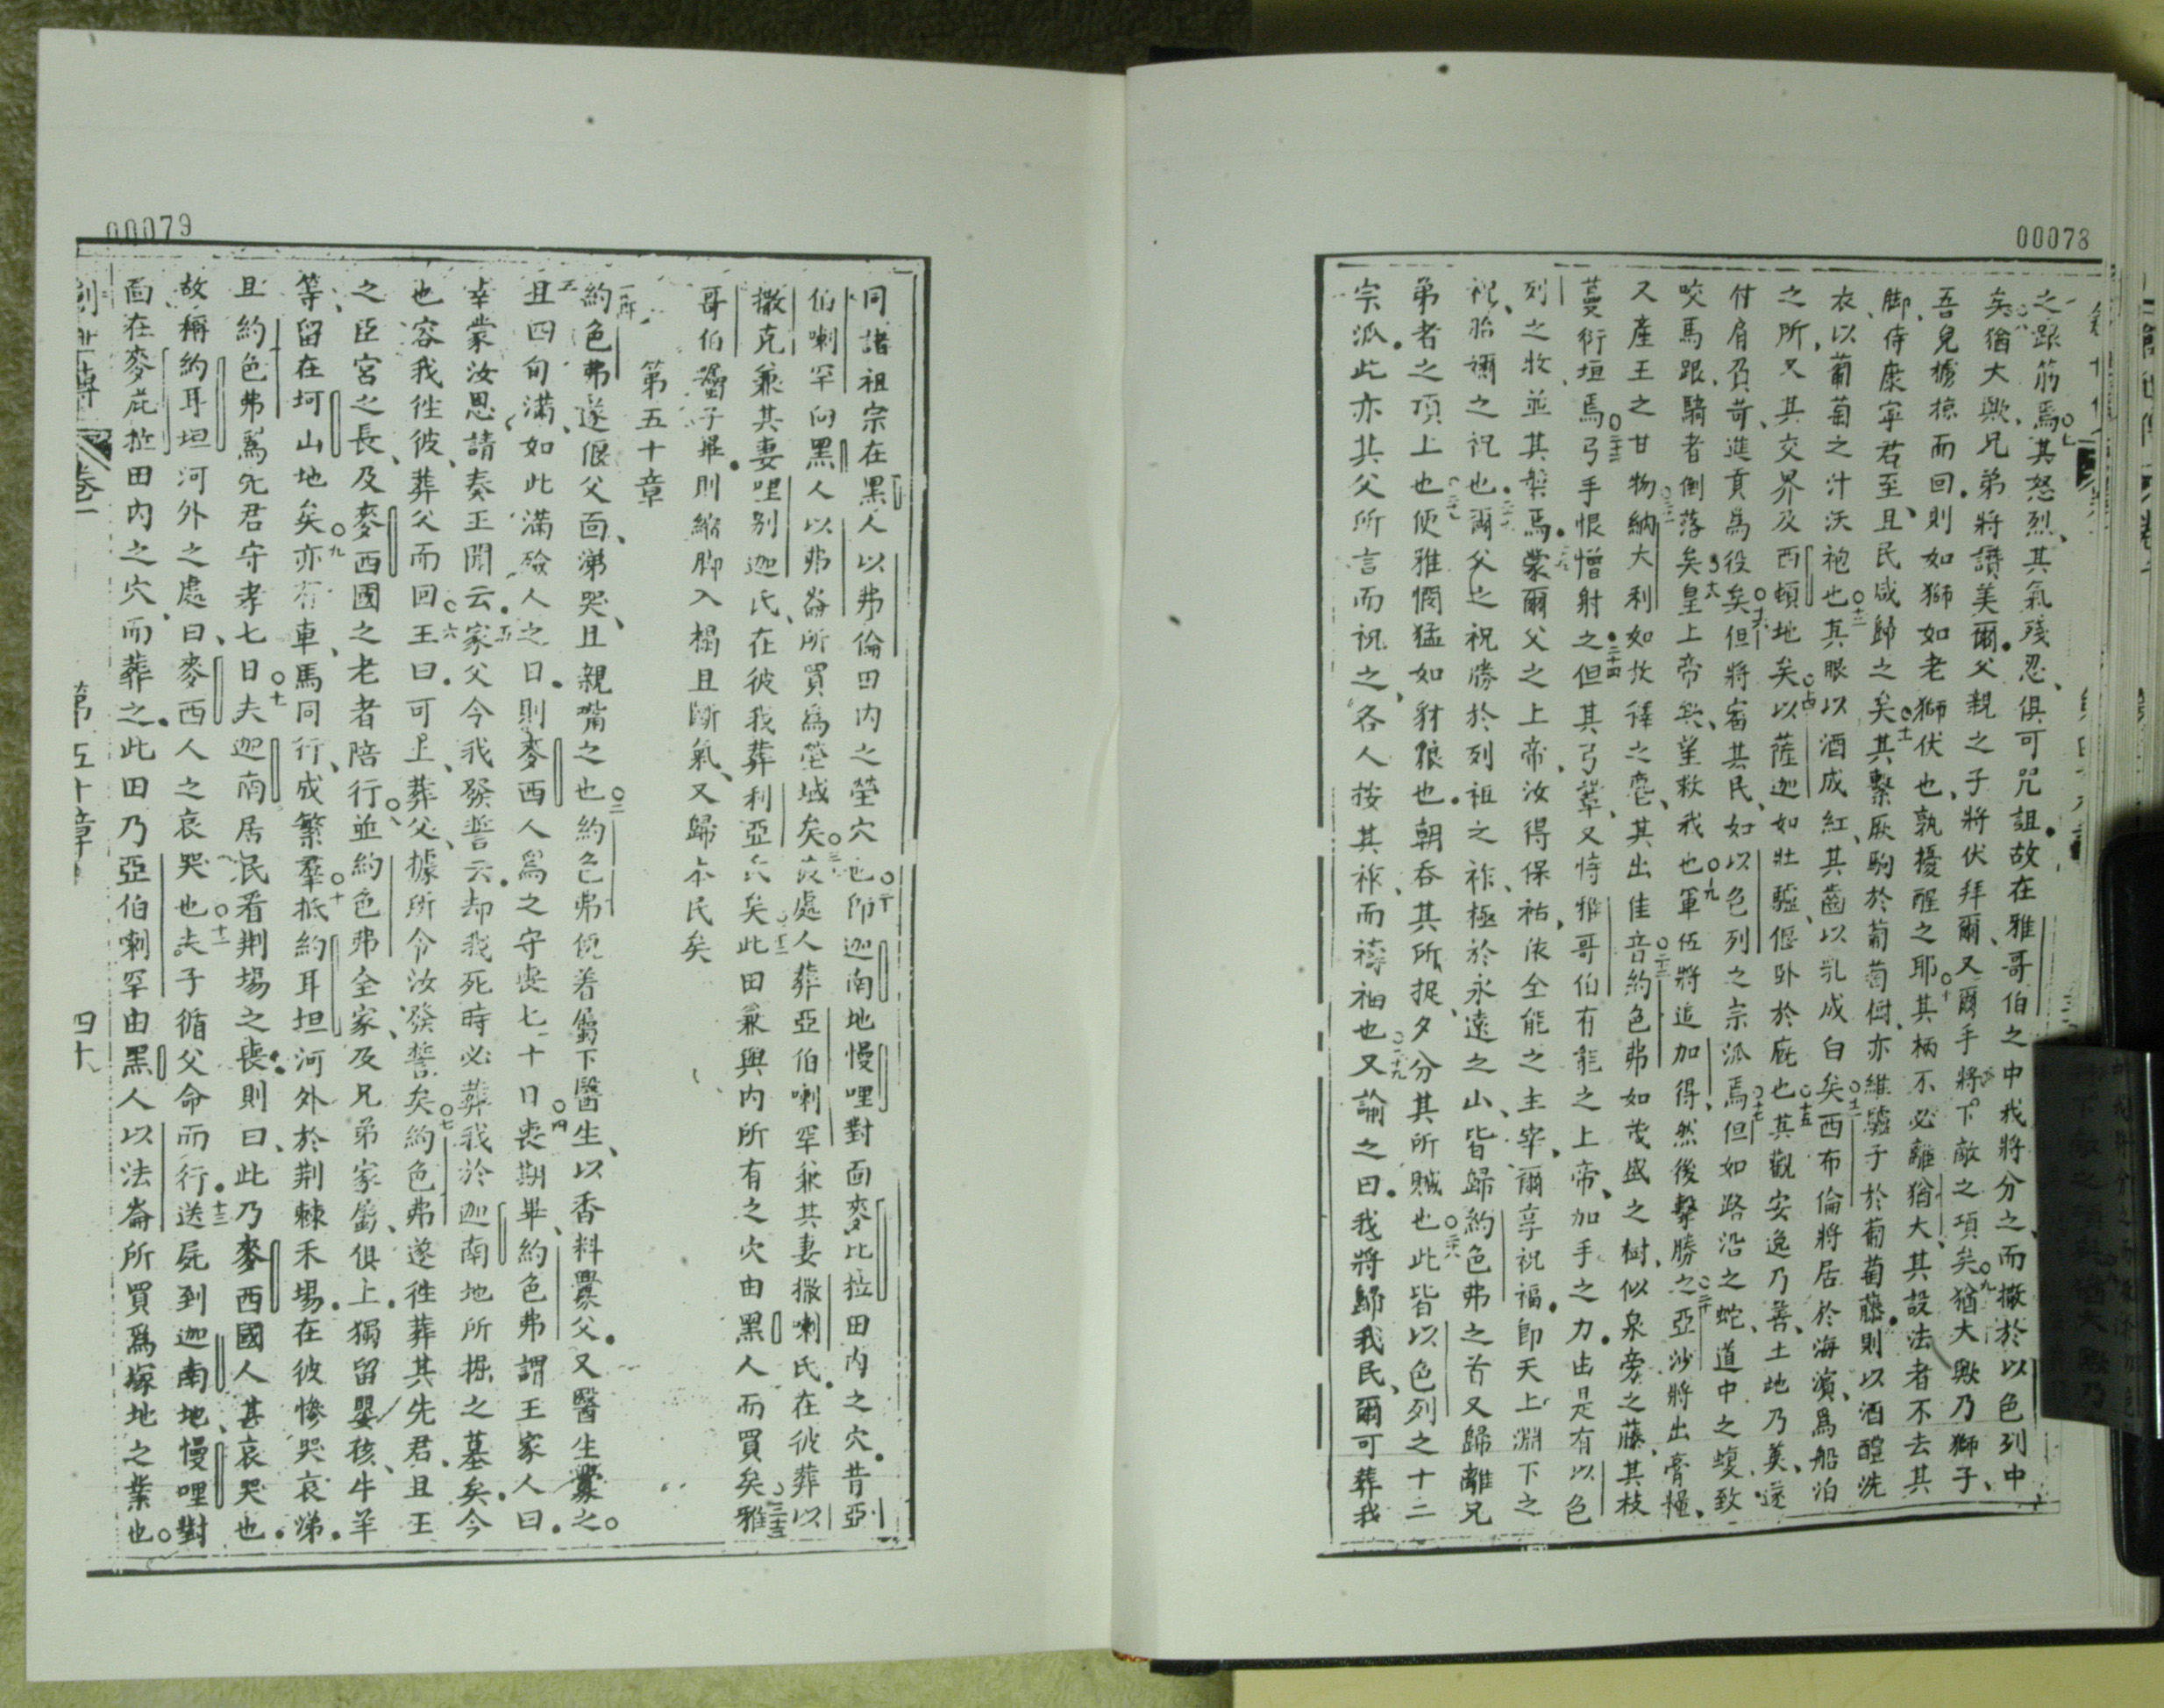 00078
之跟筋焉○七其怒烈、其氣殘忍、俱可咒詛故在雅哥伯之中我將分之、而撒於以色列中
矣猶大歟、兄弟將讚美爾父親之子將伏拜爾、又爾手將下敵之項矣○九猶大歟乃獅子、
吾兒擄掠而回則如獅如老獅伏也、孰擾醒之耶○十其柄不必離猶大、其設法者不去其
脚、侍康寧君至、且民咸歸之矣○十一其繫厥駒於葡萄樹、亦維驢子於葡萄藤、則以酒醝洗
衣、以葡萄之汁沃袍也○十二其眼以酒成紅、其齒以乳成白矣○十三西布倫將居於海濱、爲船泊
之所、又其交界及西頓地矣○十四以薩迦如壯驢、偃卧於庇也○十五其觀安逸乃善、土地乃美、遂
付肩負苛、進貢爲役矣○十六但將審其民、如以色列之宗派焉○十七但如路沿之蛇、道中之蝮、致
咬馬跟、騎者倒落矣○十八皇上帝歟、望救我也○十九軍伍將追加得、然後擊勝之○二十亞沙將出膏糧、
又產王之甘物○二十一納大利如放釋之麀、其出佳音○二十二約色弗如茂盛之樹、似泉旁之藤、其枝
蔓衍垣焉○二十三弓手恨憎射之○二十四但其弓鞏、又恃雅哥伯有能之上帝、加手之力由是有以色
列之牧、並其磐焉蒙爾父之上帝、汝得保祐、依全能之主宰、爾享祝福即天上淵下之
祝、胎襧之祝也爾父之祝勝於列祖之祚、極於永遠之山、皆歸約色弗之首又歸離兄
弟者之頂上也○二十七便雅憫猛如豺狼也朝吞其所捉、夕分其所賊也○二十八此皆以色列之十二
宗派此亦其父所言而祝之、各人按其祚、而禱祉也○二十九又諭之曰我將歸我民、爾可葬我
00079
同諸祖宗在黑人以弗倫田内之塋穴也○三十即迦南地慢哩對面麥比拉田内之穴昔亞
伯喇罕向黑人以弗崙所買爲塋域矣○三十一彼處人葬亞伯喇罕兼其妻撒喇氏在彼葬以
撒克兼其妻哩别迦氏、在彼我葬利亞氏矣○三十二此田兼與内所有之穴由黑人而買矣○三十三雅
哥伯囑子畢則縮脚入榻且斷氣、又歸本民矣
第五十章
一節約色弗遂偃父面、涕哭、且親嘴之也○二約色弗便着屬下醫生、以香料釁父又醫生釁之○
三且四旬滿、如此滿殮人之日則麥西人爲之守喪七十日○四喪期畢、約色弗謂王家人曰
幸蒙汝恩請奏王聞云五家父今我發誓云却我死時必葬我於迦南地所掘之墓矣今
也容我徃彼、葬父而回○六王曰可上、葬父、據所令汝發誓矣○七約色弗遂徃葬其先君、且王
之臣宮之長、及麥西國之老者陪行○八並約色弗全家、及兄弟家屬、俱上獨留嬰孩、牛羊
等、留在坷山地矣○九亦有車、馬同行、成繁羣○十抵約耳坦河外於荆棘禾場在彼慘哭哀涕
且約色弗爲先君守孝七日○十一夫迦南居民看荆場之喪則曰、此乃麥西國人甚哀哭也
故稱約耳坦河外之處曰、麥西人之哀哭也○十二夫子循父命而行十三送屍到迦南地、慢哩對
面在麥庇拉田内之穴、而葬之此田乃亞伯喇罕由黑人以法崙所買爲塚地之業也○
創世傳 卷一 第五十章 四十